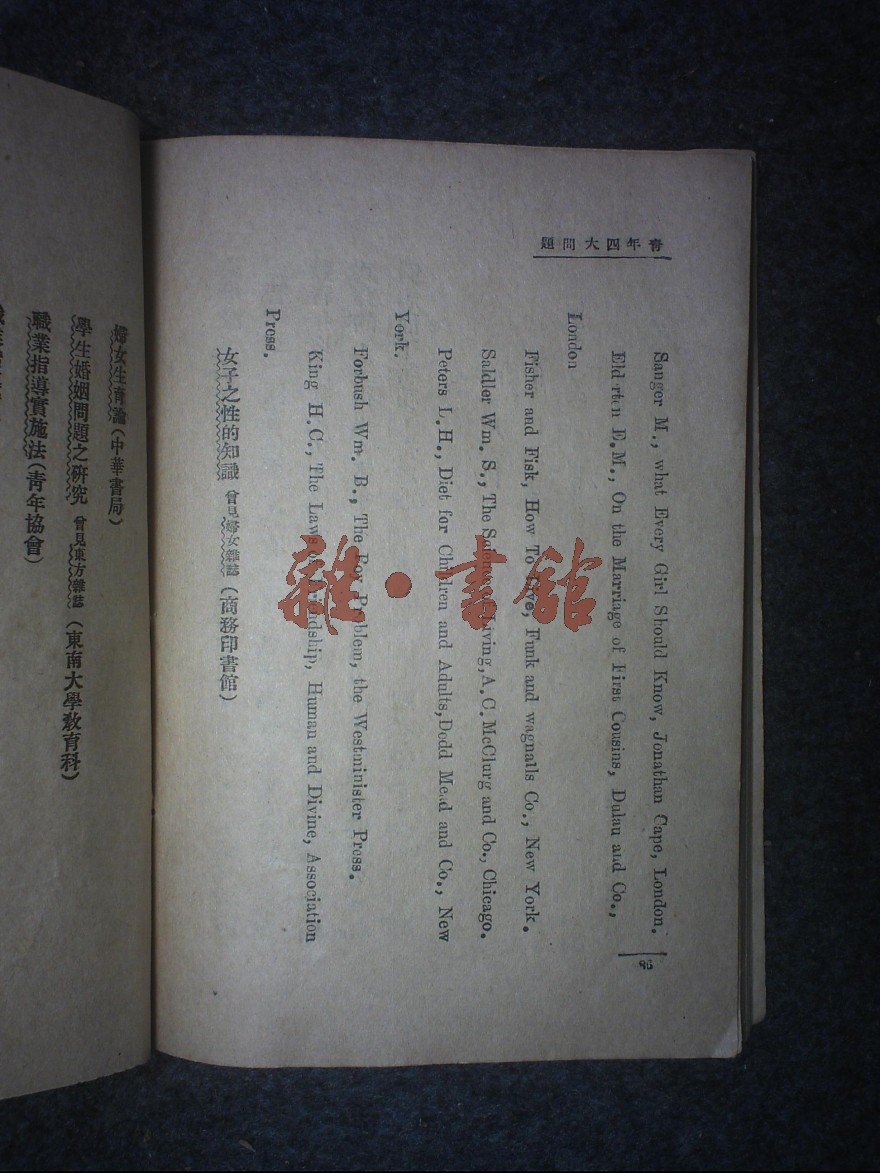 青年四大問題
Sanger M., what Every Girl Should Know, Jonathan Cape, London.
Elderton E.M., On the Marriage of First Cousins, Dulau and Co.,
London
Fisher and Fisk, How To Live, Funk and wagnalls Co., New York.
Sadler Wm. S., The Science of Living, A.C. McClurg and Co., Chicago.
Peters L.H., Diet for Children and Adults, Dodd Mead and Co., New
York.
Forbush Wm. B., The Boy Problem, the Westminister Press.
King H.C., The Laws of Friendship, Human and Divine, Association
Press.
女子之性的知識 曾見婦女雜誌 (商務印書館)
96
婦女生育論 (中華書局)
學生婚姻問題之研究 曾見東方雜誌 (東南大學教育科)
職業指導實施法 (青年協會)
雜·書館